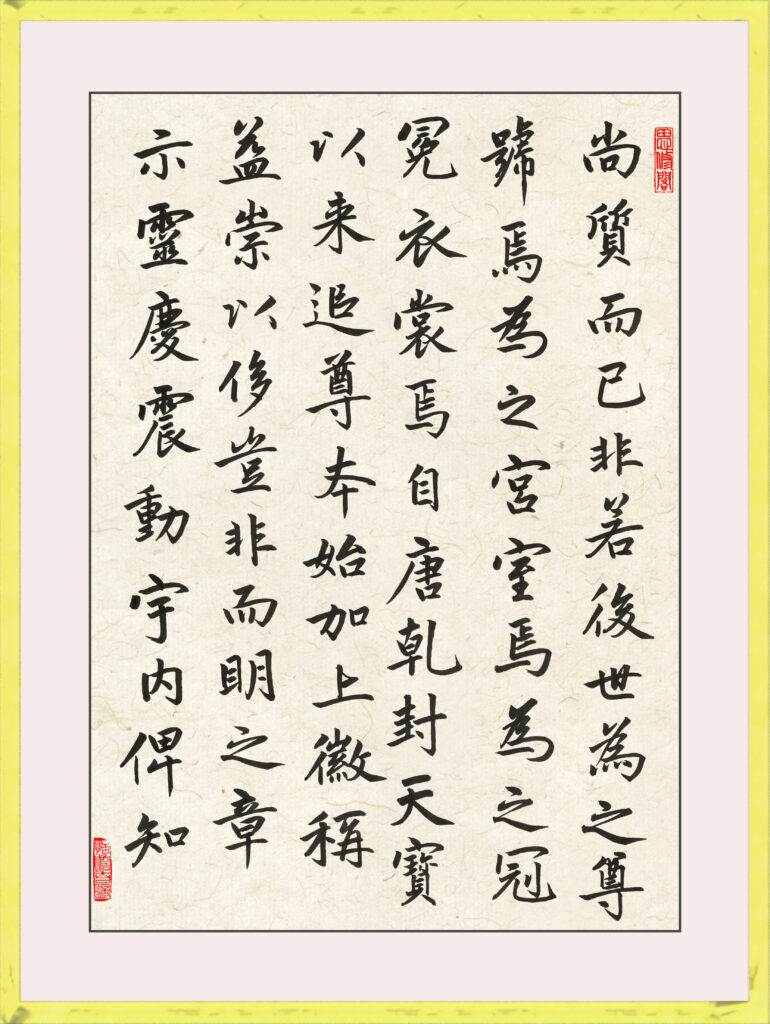 思修閣
尚質而已非若後世為之尊
號焉為之宮室焉為之冠
冕衣裳焉自唐乾封天寶
以来追尊本始加上徽稱
益崇以侈豈非而明之章
示靈慶震動宇内俾知